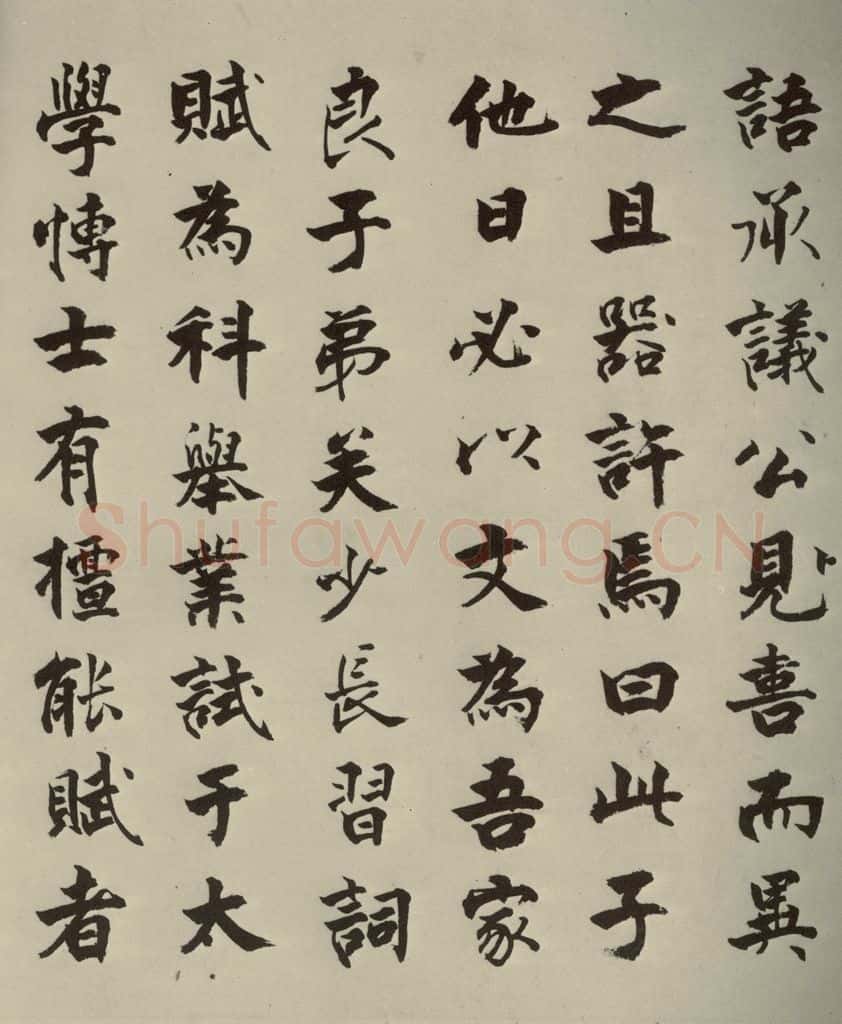 語承議公見喜而異
之且器許焉曰此子
他日必以文為吾家
良子弟矣少長習詞
賦為科舉業試于太
學博士有擅能賦者
Shufawang.CN